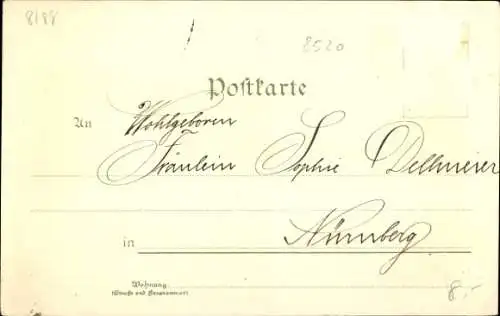 8188
8520
Postkarte
An Wohlgeboren
Fräulein Sophie Dellmeier
in Nürnberg
Wohnung
(Straße und Hausnummer)
8,-